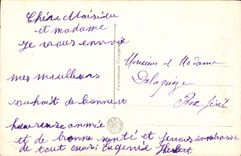 Chère Moisieu
et madame
je vous envoie
mes meulleurs
souhait de bonneur
heureuse année
et de bonne santé et je vous embrasse
de tout cœur Eugénie Herbert
Monsieur et Madame